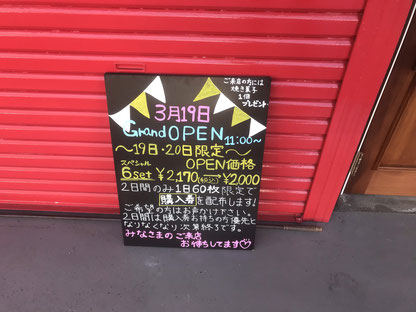 ご来店の方には
焼き菓子
1個
プレゼント
3月19日
Grand OPEN
11:00〜
〜19日・20日限定〜
スペシャル OPEN価格
6set ¥2,170 → ¥2,000
2日間のみ1日60枚限定で
購入券を配布します!
ご希望の方はお声かけ下さい。
2日間は購入券お持ちの方優先と
なりなくなり次第終了です。
みなさまのご来店
お待ちしてます♡